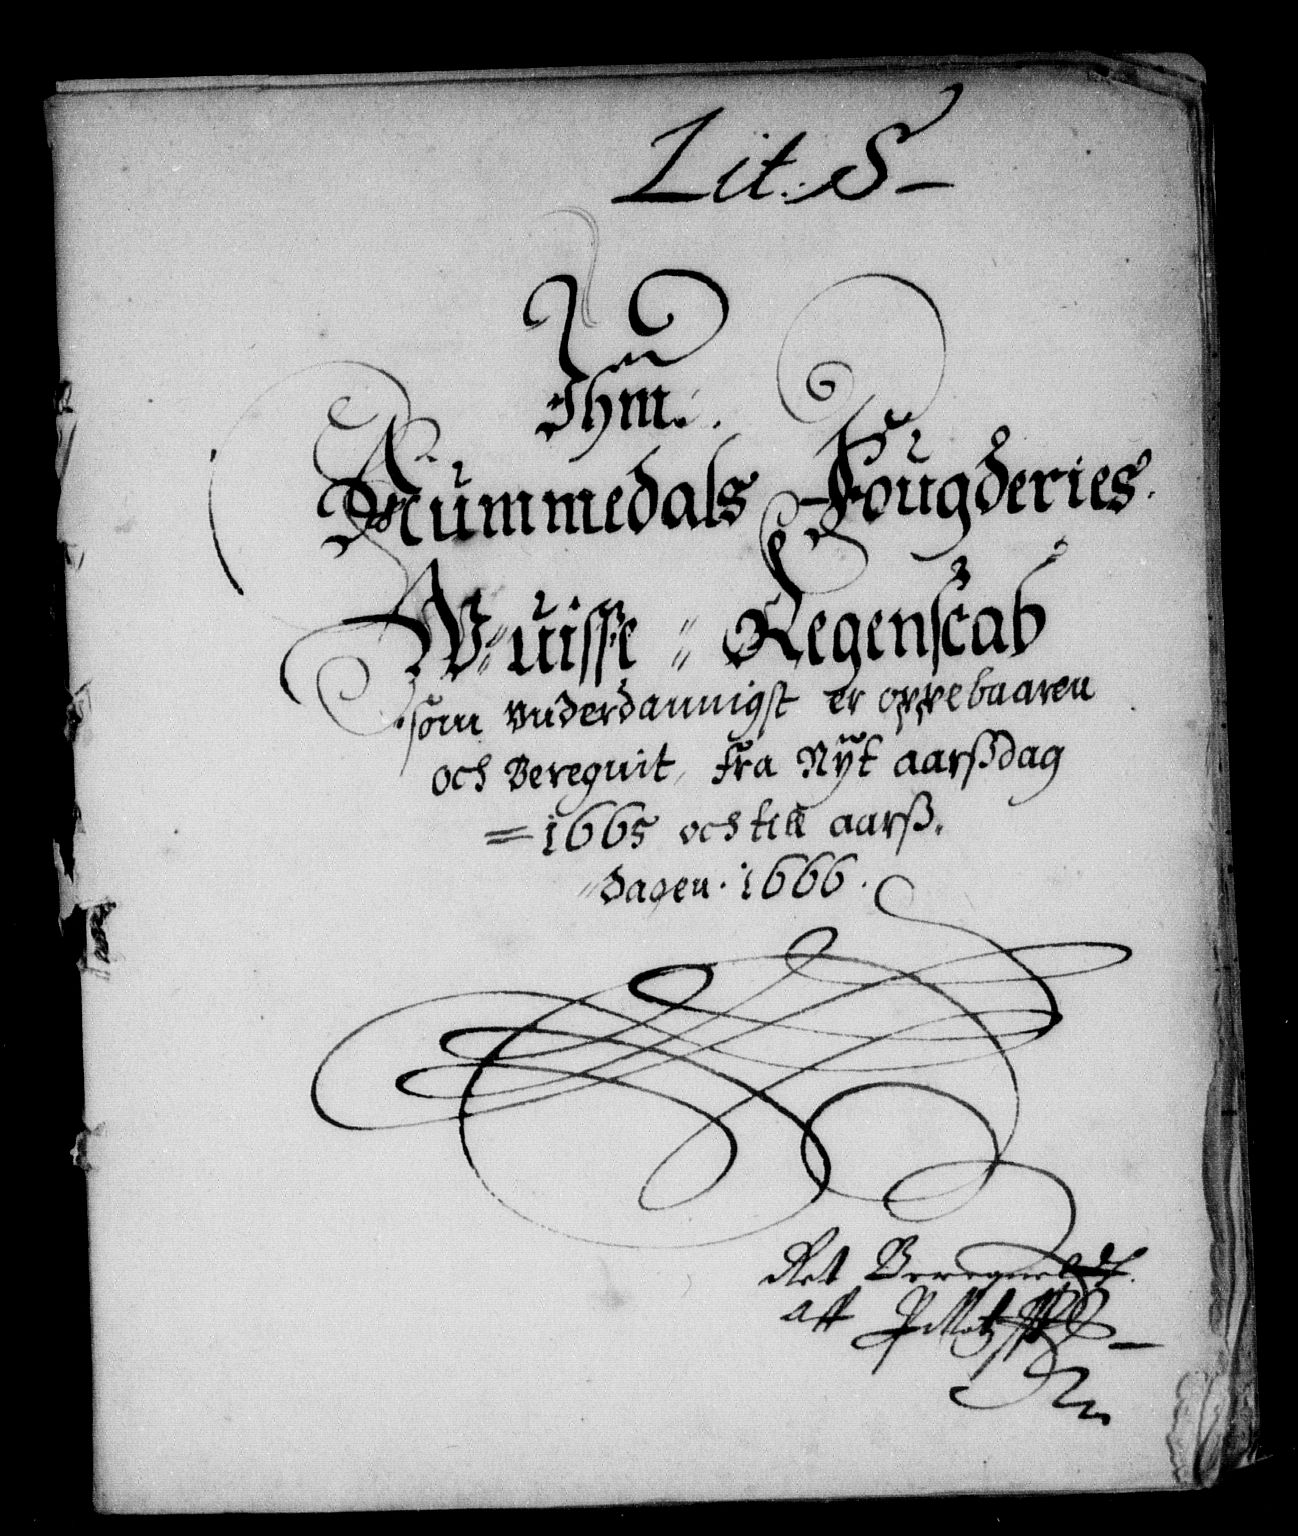 Lit. S
Ihm.
Nummedals Fougderies
Wuisse Regenscab
som Vnderdannigst er oppebaaren
och Bereguit, fra Nÿt aarßdag
1665 och till aarß.
dagen. 1666.
aff